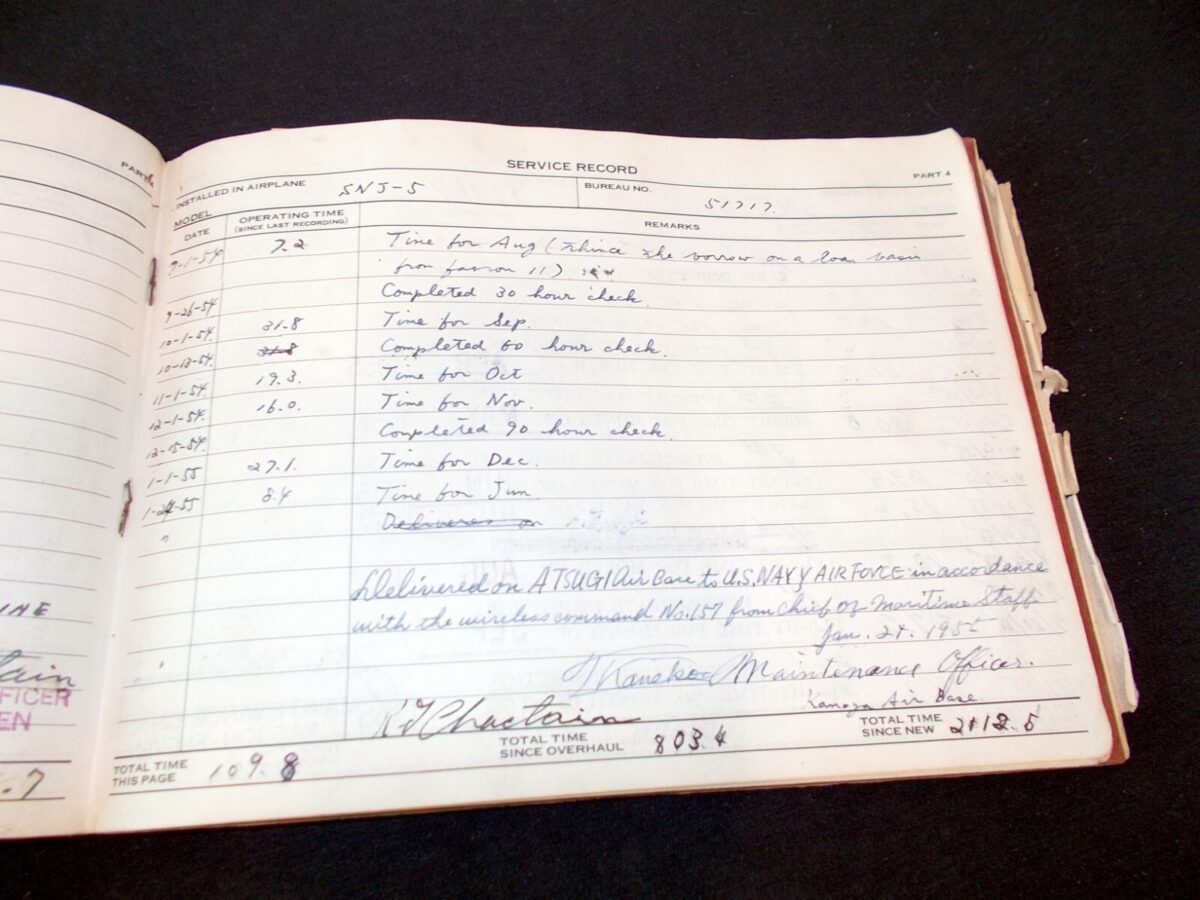 PART 4
INE
tain
FFICER
EN
.7
SERVICE RECORD
PART 4
INSTALLED IN AIRPLANE SNJ-5 BUREAU NO. 51717
MODEL
DATE OPERATING TIME (SINCE LAST RECORDING) REMARKS
9-1-54 7.2 Time for Aug (Thince the vorrow on a loan basis
from fasron 11)
9-26-54 Completed 30 hour check.
10-1-54 31.8 Time for Sep.
10-13-54 31.8 Completed 60 hour check.
11-1-54 19.3 Time for Oct
12-1-54 16.0 Time for Nov.
12-15-54 Completed 90 hour check.
1-1-55 27.1 Time for Dec.
1-24-55 8.4 Time for Jun.
" Deliveres on
Delivered on ATSUGI Air Base to U.S. NAVY AIR FORCE in accordance
with the wireless command No.157 from chief of Maritime Staff
Jan. 24. 1955
T Kaneko Maintenance Officer.
Kanoya Air Base.
Chastain
TOTAL TIME THIS PAGE 109.8 TOTAL TIME SINCE OVERHAUL 803.4 TOTAL TIME SINCE NEW 2112.5